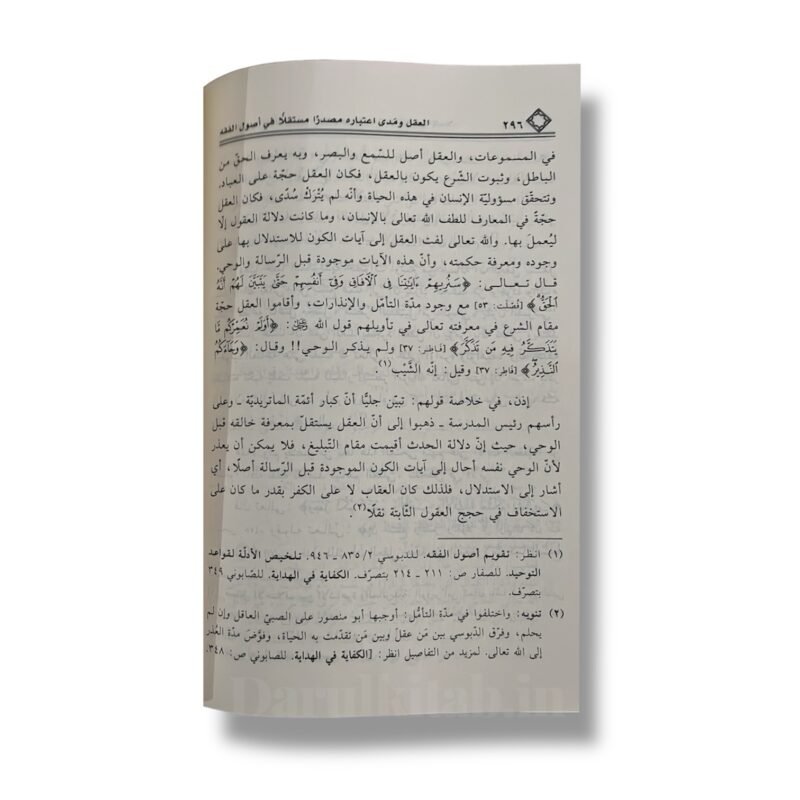 ٢٩٦ العقل ومَدى اعتباره مصدرًا مستقلًّا في أصول الفقه
في المسموعات، والعقل أصل للسّمع والبصر، وبه يعرف الحقّ من
الباطل، وثبوت الشّرع يكون بالعقل، فكان العقل حجّة على العباد.
وتتحقّق مسؤوليّة الإنسان في هذه الحياة وأنّه لم يُتْرَكْ سُدًى، فكان العقل
حجّةً في المعارف للطف الله تعالى بالإنسان، وما كانت دلالة العقول إلّا
ليُعملَ بها. والله تعالى لفت العقل إلى آيات الكون للاستدلال بها على
وجوده ومعرفة حكمته، وأنّ هذه الآيات موجودة قبل الرّسالة والوحي.
قال تعالى: ﴿سَنُرِيهِمْ ءَايَٰتِنَا فِي الْآفَاقِ وَفِي أَنفُسِهِمْ حَتَّىٰ يَتَبَيَّنَ لَهُمْ أَنَّهُ
الْحَقُّ﴾ [فُصّلَت: ٥٣] مع وجود مدّة التأمّل والإنذارات، وأقاموا العقل حجّة
مقام الشرع في معرفته تعالى في تأويلهم قول الله ﷻ: ﴿أَوَلَمْ نُعَمِّرْكُم مَّا
يَتَذَكَّرُ فِيهِ مَن تَذَكَّرَ﴾ [فَاطِر: ٣٧] ولم يذكر الوحي!! وقال: ﴿وَجَاءَكُمُ
النَّذِيرُ﴾ [فَاطِر: ٣٧] وقيل: إنّه الشَّيْب(١).
إذن، في خلاصة قولهم: تبيّن جليًّا أنّ كبار أئمّة الماتريديّة ـ وعلى
رأسهم رئيس المدرسة ـ ذهبوا إلى أنّ العقل يستقلّ بمعرفة خالقه قبل
الوحي، حيث إنّ دلالة الحدث أقيمت مقام التّبليغ، فلا يمكن أن يعذر
لأنّ الوحي نفسه أحال إلى آيات الكون الموجودة قبل الرّسالة أصلًا، أي
أشار إلى الاستدلال، فلذلك كان العقاب لا على الكفر بقدر ما كان على
الاستخفاف في حجج العقول الثّابتة نقلًا(٢).
(١) انظر: تقويم أصول الفقه. للدبوسي ٨٣٥/٢ ـ ٩٤٦. تلخيص الأدلّة لقواعد
التوحيد. للصفار ص: ٢١١ ـ ٢١٤ بتصرّف. الكفاية في الهداية. للصابوني ٣٤٩
بتصرّف.
(٢) تنويه: واختلفوا في مدّة التأمّل: أوجبها أبو منصور على الصبيّ العاقل وإن لم
يحلم، وفرّق الدّبوسي بين مَن عقلَ وبين مَن تقدّمت به الحياة، وفوَّضَ مدّة العُذر
إلى الله تعالى. لمزيد من التفاصيل انظر: [الكفاية في الهداية. للصابوني ص: ٣٤٨.
Darulkitab.in